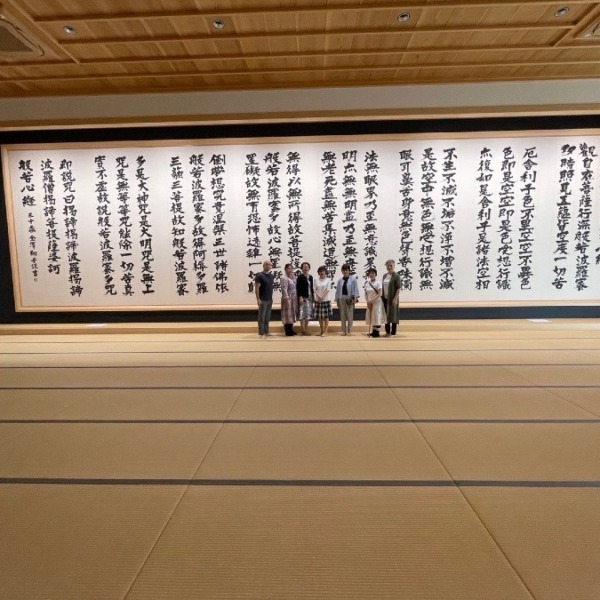 観自在菩薩行深般若波羅蜜
多時照見五蘊皆空度一切苦
厄舎利子色不異空空不異色
色即是空空即是色受想行識
亦復如是舎利子是諸法空相
不生不滅不垢不浄不増不減
是故空中無色無受想行識無
眼耳鼻舌身意無色声香味觸
法無眼界乃至無意識界
明亦無無明盡乃至無
無老死盡無苦集滅道無
無得以無所得故菩提薩
般若波羅蜜多故心無
罣礙故無有恐怖遠離一切顛
倒夢想究竟涅槃三世諸佛依
般若波羅蜜多故得阿耨多羅
三藐三菩提故知般若波羅蜜
多是大神咒是大明咒是無上
咒是無等等咒能除一切苦真
實不虚故説般若波羅蜜多咒
即説咒曰掲諦掲諦波羅掲諦
波羅僧掲諦菩提薩婆訶
般若心経